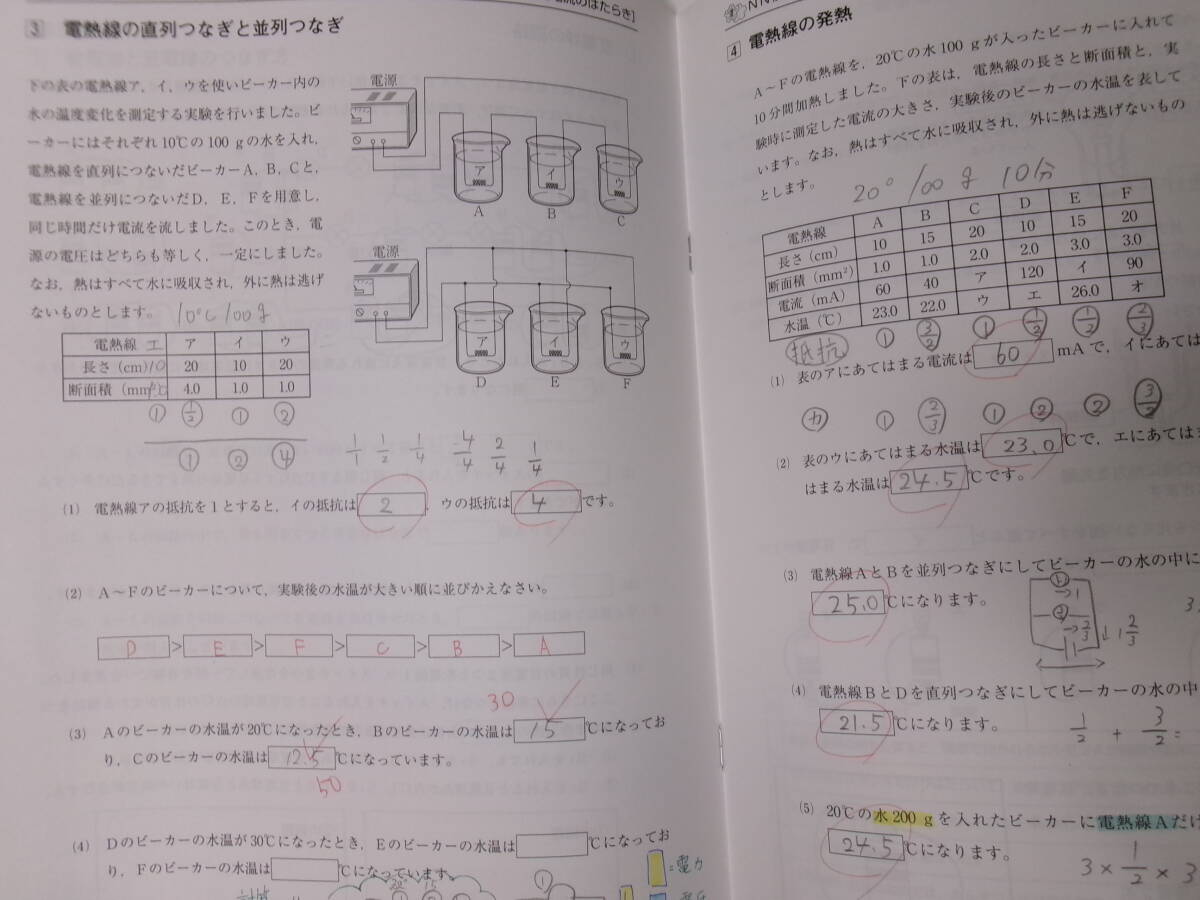 流のはたらき]
3 電熱線の直列つなぎと並列つなぎ
下の表の電熱線ア，イ，ウを使いビーカー内の
水の温度変化を測定する実験を行いました。ビ
ーカーにはそれぞれ10℃の100 gの水を入れ，
電熱線を直列につないだビーカーA，B，Cと，
電熱線を並列につないだD，E，Fを用意し，
同じ時間だけ電流を流しました。このとき，電
源の電圧はどちらも等しく，一定にしました。
なお，熱はすべて水に吸収され，外に熱は逃げ
ないものとします。 10℃ 100g
電源
ア イ ウ
A B C
電源
ア イ ウ
D E F
電熱線 エ ア イ ウ
長さ(cm) 10 20 10 20
断面積(mm²) 4.0 1.0 1.0
① ①/② ① ②
① ② ④
1/1 1/2 1/4 4/4 2/4 1/4
(1) 電熱線アの抵抗を1とすると，イの抵抗は 2 ，ウの抵抗は 4 です。
(2) A～Fのビーカーについて，実験後の水温が大きい順に並びかえなさい。
D > E > F > C > B > A
30
(3) Aのビーカーの水温が20℃になったとき，Bのビーカーの水温は 15 ℃になってお
り，Cのビーカーの水温は 12.5 ℃になっています。
50
(4) Dのビーカーの水温が30℃になったとき，Eのビーカーの水温は ℃になってお
り，Fのビーカーの水温は ℃になっています。
=電力
4 電熱線の発熱
A～Fの電熱線を，20℃の水100 gが入ったビーカーに入れて
10分間加熱しました。下の表は，電熱線の長さと断面積と，実
験時に測定した電流の大きさ，実験後のビーカーの水温を表して
います。なお，熱はすべて水に吸収され，外に熱は逃げないもの
とします。 20° 100g 10分
電熱線 A B C D E F
長さ(cm) 10 15 20 10 15 20
断面積(mm²) 1.0 1.0 2.0 2.0 3.0 3.0
電流(mA) 60 40 ア 120 イ 90
水温(℃) 23.0 22.0 ウ エ 26.0 オ
抵抗 ① 3/2 ① 1/2 1/2 2/3
(1) 表のアにあてはまる電流は 60 mAで，イにあては
カ ① 2/3 ① ② ② 3/2
(2) 表のウにあてはまる水温は 23.0 ℃で，エにあては
はまる水温は 24.5 ℃です。
(3) 電熱線AとBを並列つなぎにしてビーカーの水の中に
25.0 ℃になります。
(4) 電熱線BとDを直列つなぎにしてビーカーの水の中
21.5 ℃になります。
1/2 + 3/2 =
(5) 20℃の水200 gを入れたビーカーに電熱線Aだけ
24.5 ℃になります。
3 × 1/2 × 3